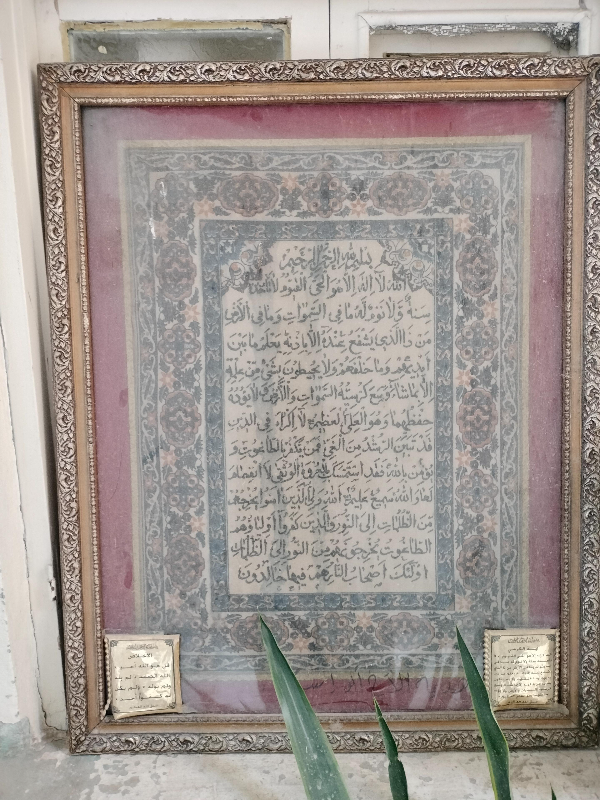 بسم الله الرحمن الرحيم
الله لا إله إلا هو الحي القيوم لا تأخذه
سنة ولا نوم له ما في السموات وما في الأرض
من ذا الذي يشفع عنده إلا بإذنه يعلم ما بين
أيديهم وما خلفهم ولا يحيطون بشيء من علمه
إلا بما شاء وسع كرسيه السموات والأرض ولا يؤده
حفظهما وهو العلي العظيم لا إكراه في الدين
قد تبين الرشد من الغي فمن يكفر بالطاغوت و
يؤمن بالله فقد استمسك بالعروة الوثقى لا انفصام
لها والله سميع عليم الله ولي الذين آمنوا يخرجهم
من الظلمات إلى النور والذين كفروا أولياؤهم
الطاغوت يخرجونهم من النور إلى الظلمات
أولئك أصحاب النار هم فيها خالدون
الاخلاص
قل هو الله احد
الله الصمد لم يلد
ولم يولد ولم يكن